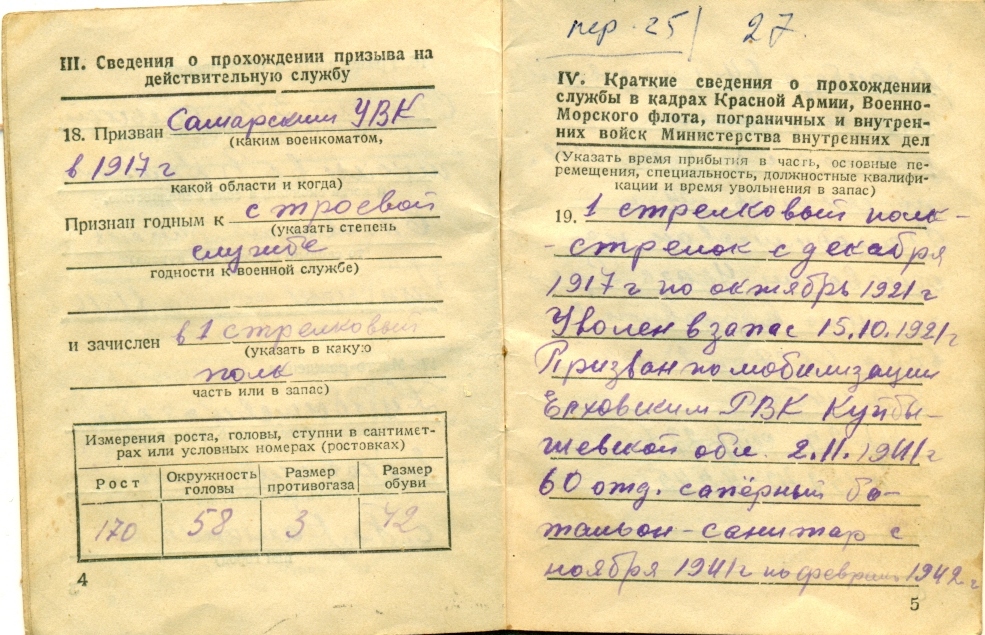 III. Сведения о прохождении призыва на
действительную службу
18. Призван Самарским УВК
(каким военкоматом,
в 1917 г
какой области и когда)
Признан годным к строевой
(указать степень
службе
годности к военной службе)
и зачислен в 1 стрелковый
(указать в какую
полк
часть или в запас)
Измерения роста, головы, ступни в сантимет-
рах или условных номерах (ростовках)
Рост Окружность головы Размер противогаза Размер обуви
170 58 3 42
4
пер. 25/ 27.
IV. Краткие сведения о прохождении
службы в кадрах Красной Армии, Военно-
Морского флота, пограничных и внутрен-
них войск Министерства внутренних дел
(Указать время прибытия в часть, основные пе-
ремещения, специальность, должностные квалифи-
кации и время увольнения в запас)
19. 1 стрелковый полк -
- стрелок с декабря
1917 г по октябрь 1921 г
Уволен в запас 15.10.1921 г
Призван по мобилизации
Елховским РВК Куйбы-
шевской обл. 2.11.1941 г
60 отд. сапёрный ба-
тальон - санитар с
ноября 1941 г по февраль 1942 г
5